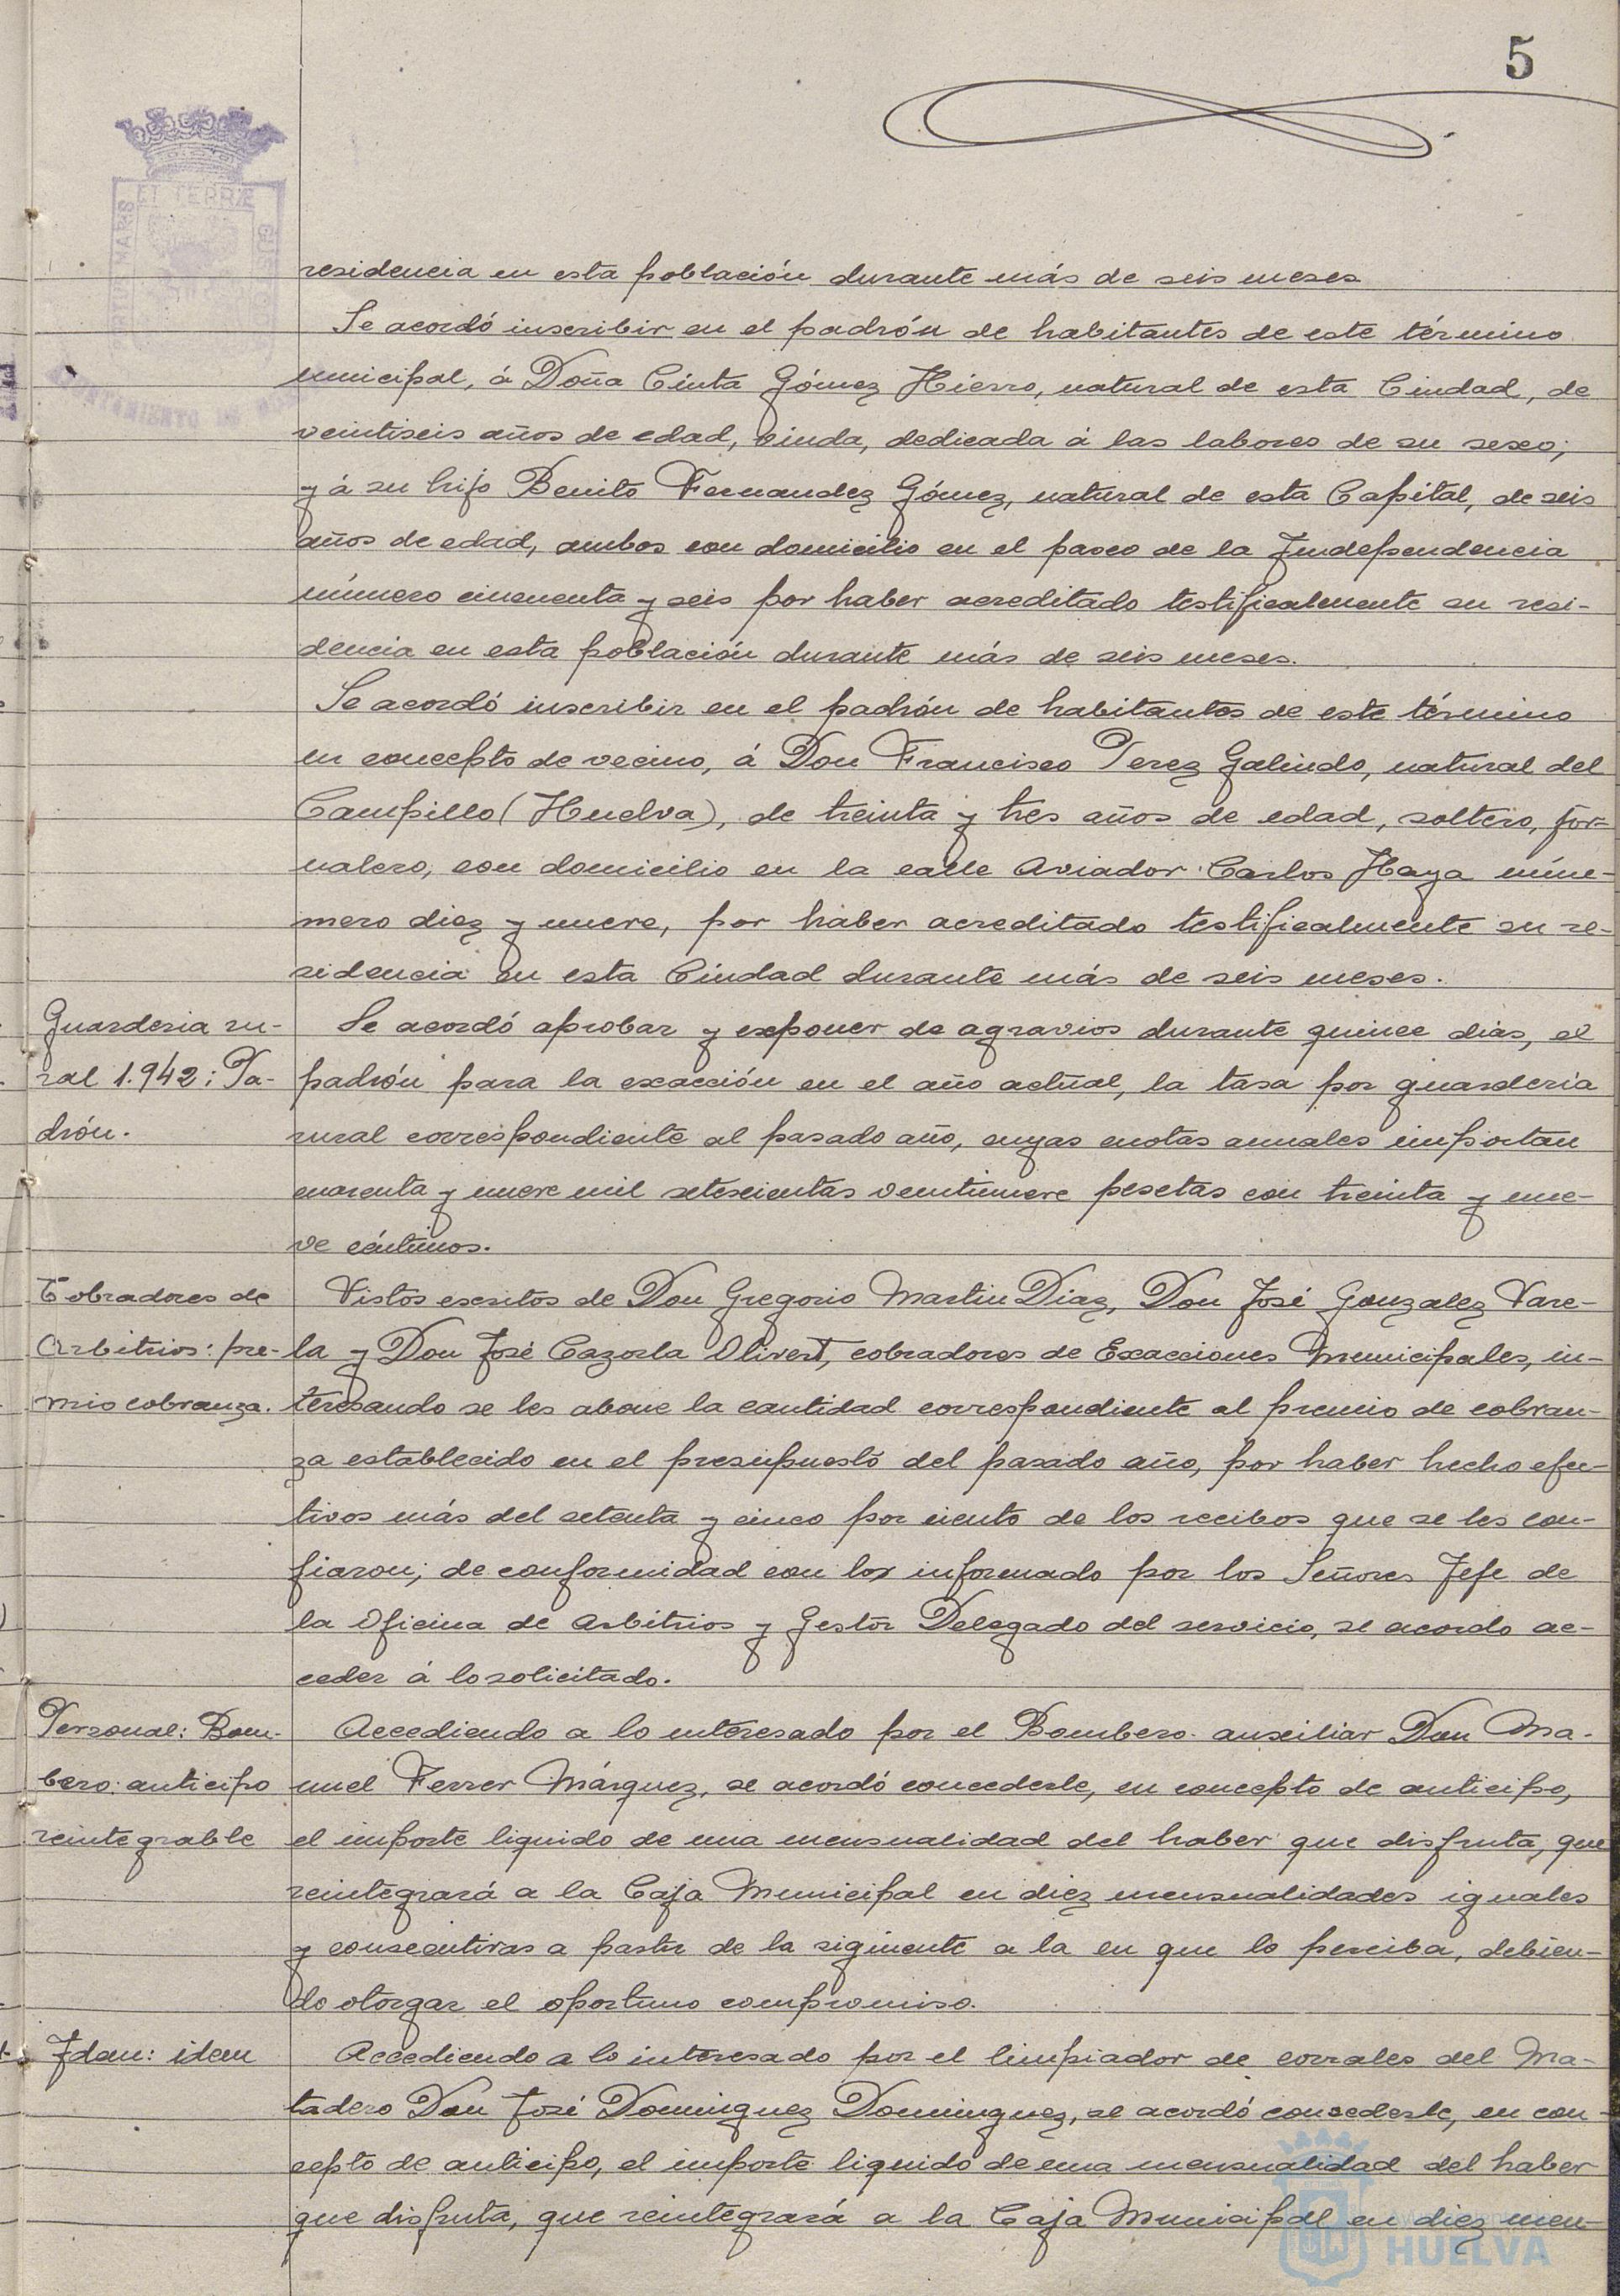 5
ET TERRÆ
MARIS
residencia en esta población durante más de seis meses.
Se acordó inscribir en el padrón de habitantes de este término
municipal, á Doña Cinta Gómez Hierro, natural de esta Ciudad, de
veintiseis años de edad, viuda, dedicada á las labores de su sexo;
y á su hijo Benito Fernandez Gómez, natural de esta Capital, de seis
años de edad, ambos con domicilio en el paseo de la Independencia
número cincuenta y seis por haber acreditado testificalmente su resi-
dencia en esta población durante más de seis meses.
Se acordó inscribir en el padrón de habitantes de este término
en concepto de vecino, á Don Francisco Perez Galindo, natural del
Campillo (Huelva), de treinta y tres años de edad, soltero, jor-
nalero, con domicilio en la calle Aviador Carlos Haya núme-
mero diez y nueve, por haber acreditado testificalmente su re-
sidencia en esta Ciudad durante más de seis meses.
Guarderia ru-
ral 1.942: Pa-
drón.
Se acordó aprobar y exponer de agravios durante quince dias, el
padrón para la exacción en el año actual, la tasa por guarderia
rural correspondiente al pasado año, cuyas cuotas anuales importan
cuarenta y nueve mil setescientas veintinueve pesetas con treinta y nue-
ve céntimos.
Cobradores de
Arbitrios: pre-
mio cobranza.
Vistos escritos de Don Gregorio Martin Diaz, Don José Gonzalez Vare-
la y Don José Cazorla Olivert, cobradores de Exacciones Municipales, in-
teresando se les abone la cantidad correspondiente al premio de cobran-
za establecido en el presupuesto del pasado año, por haber hecho efec-
tivos más del setenta y cinco por ciento de los recibos que se les con-
fiaron; de conformidad con lo informado por los Señores Jefe de
la Oficina de Arbitrios y Gestor Delegado del servicio, se acordo ac-
ceder á lo solicitado.
Personal: Bom-
bero: anticipo
reintegrable
Accediendo a lo interesado por el Bombero auxiliar Don Ma-
nuel Ferrer Márquez, se acordó concederle, en concepto de anticipo,
el importe liquido de una mensualidad del haber que disfruta, que
reintegrará a la Caja Municipal en diez mensualidades iguales
y consecutivas a partir de la siguiente a la en que lo perciba, debien-
do otorgar el oportuno compromiso.
Idem: idem
Accediendo a lo interesado por el limpiador de corrales del Ma-
tadero Don José Dominguez Dominguez, se acordó concederle, en con-
cepto de anticipo, el importe liquido de una mensualidad del haber
que disfruta, que reintegrará a la Caja Municipal en diez men-
HUELVA